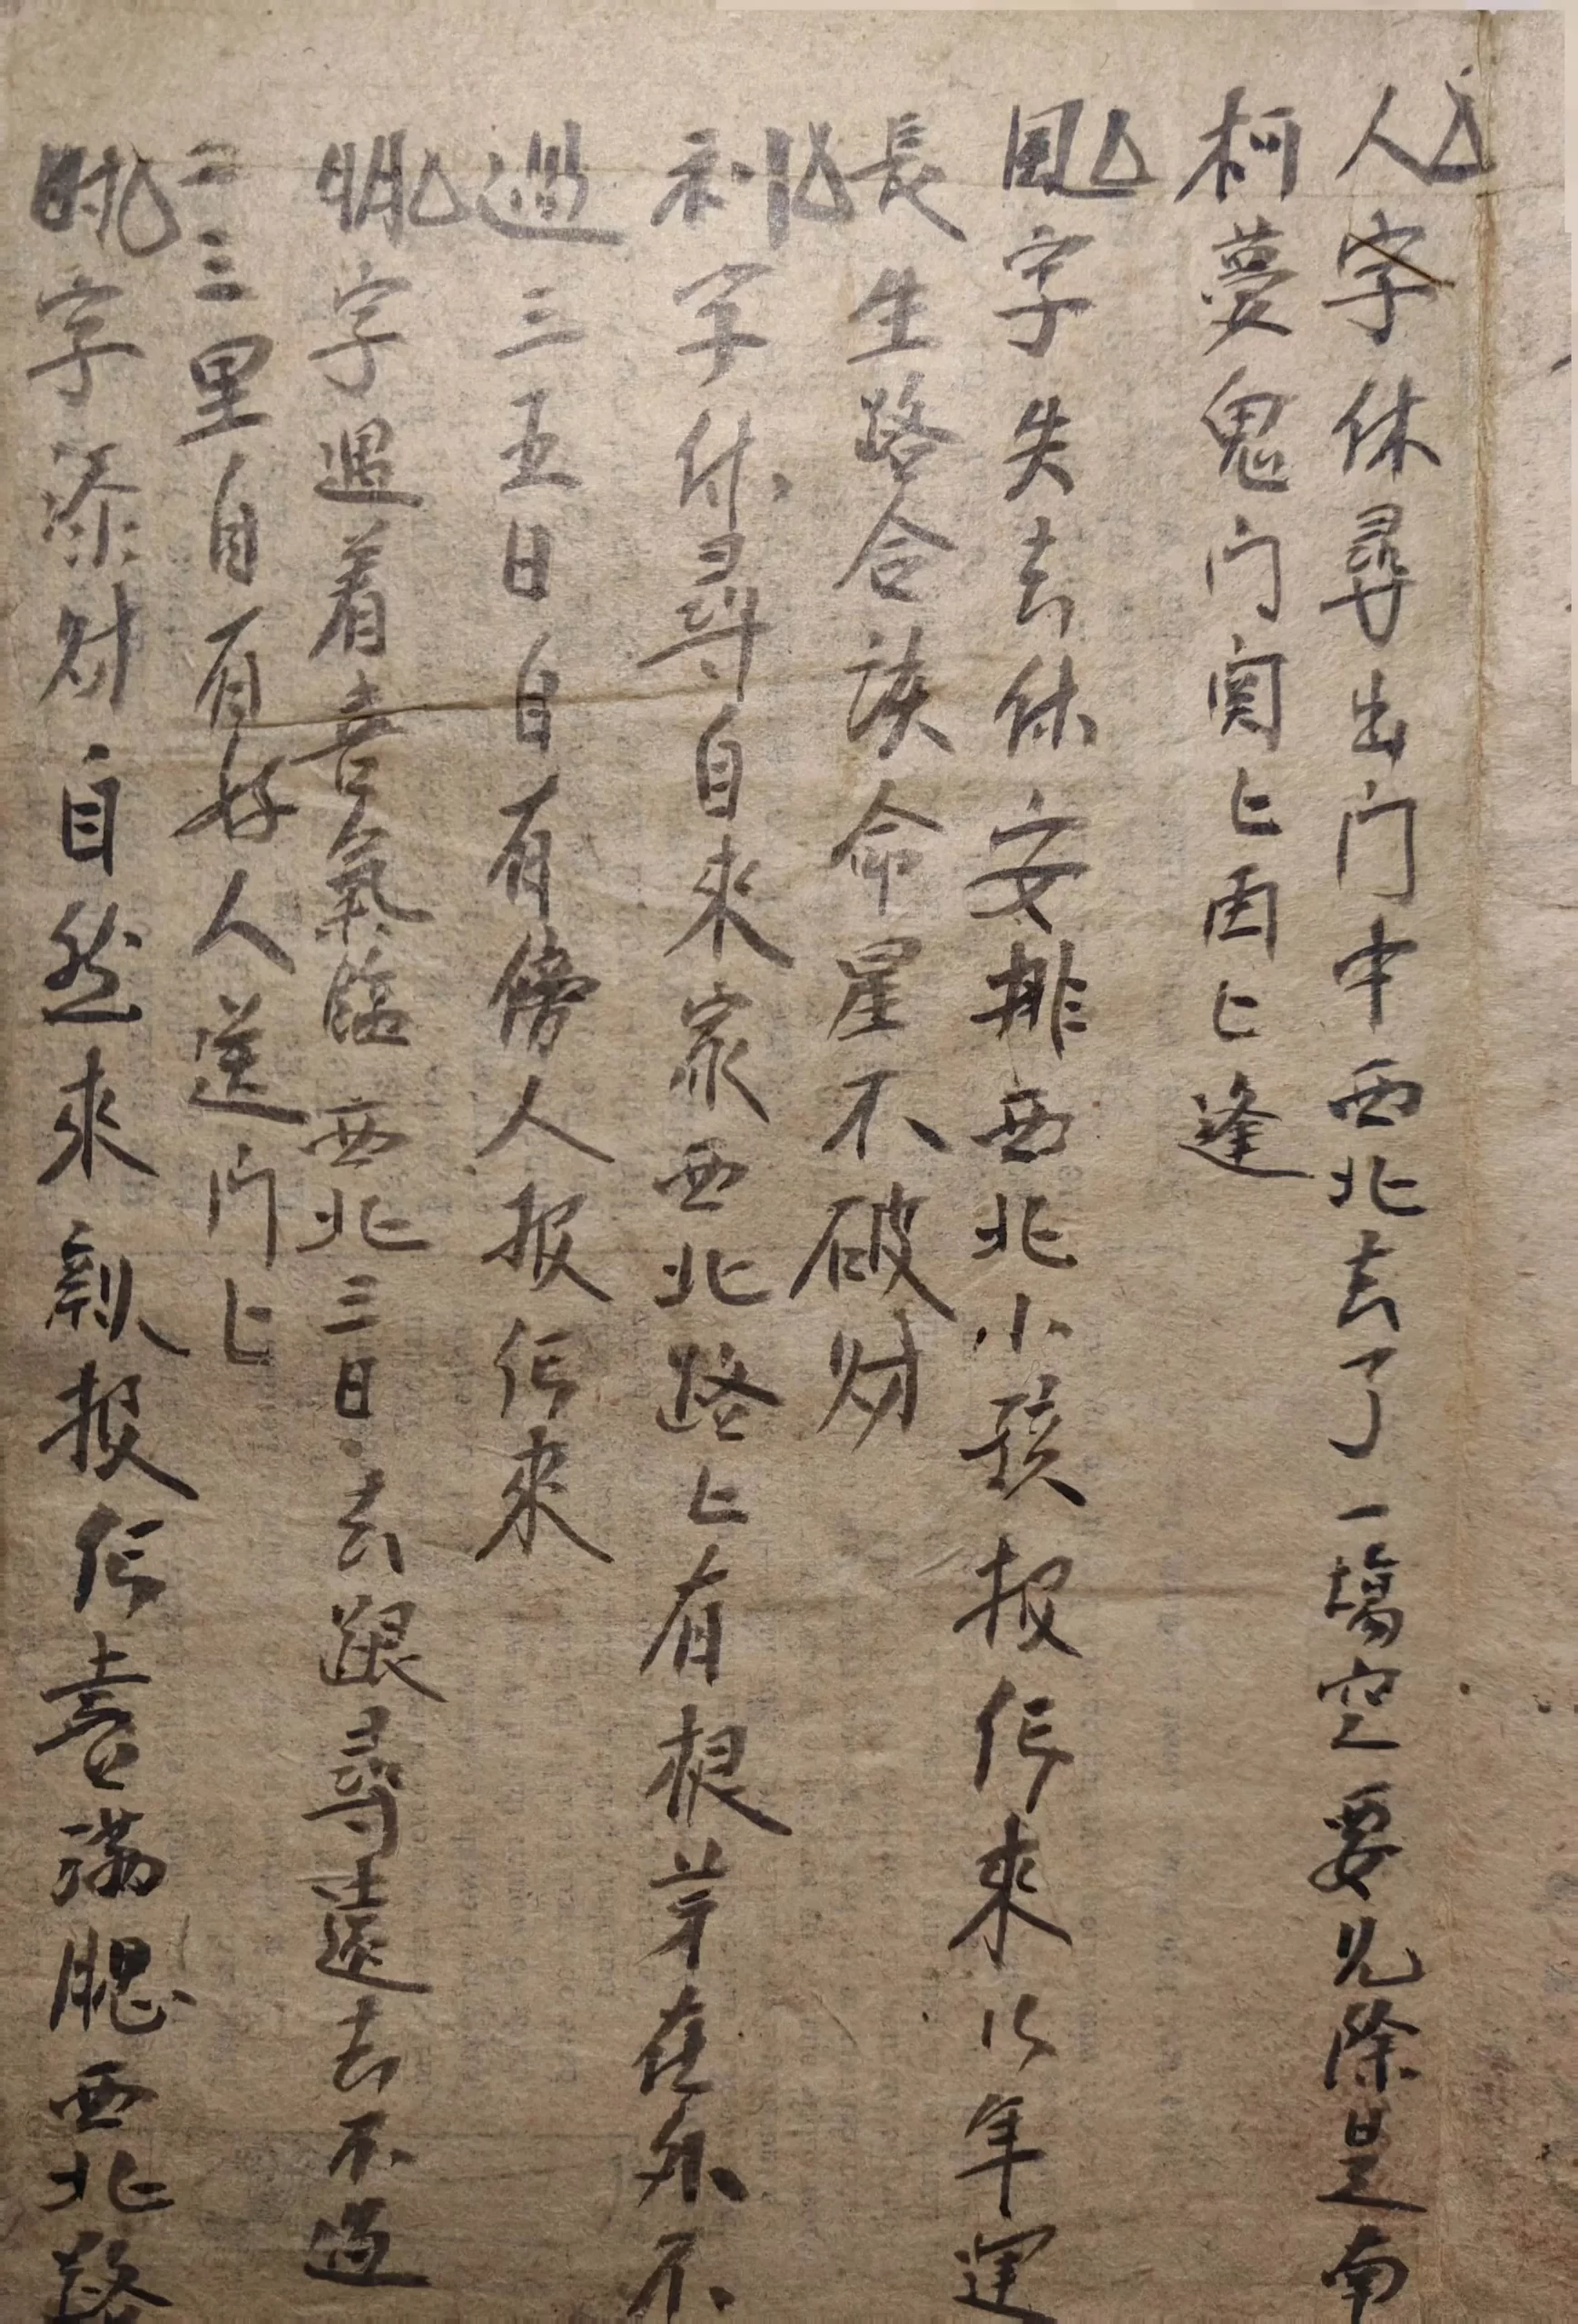 人字休尋出门中西北去了一塲空要见除是南
柯夢鬼门関上再上逢
風字失去休安排西北小孩报信来以年運
長生路合该命星不破财
利字休尋自来家西北路上有根芽在外不
過三五日自有傍人报信来
明字遇着喜氣臨西北三日去跟尋遠去不过
二三里自有好人送门上
字添财自然来報信喜满腮西北路